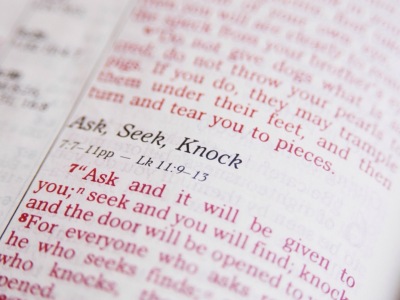 the speck from your brother's
Do not give dogs what
do not throw your pearls
pigs. If you do, they may trample
them under their feet, and then
turn and tear you to pieces.
Ask, Seek, Knock
7:7–11pp — Lk 11:9–13
7“Ask and it will be given to
you;n seek and you will find; knock
and the door will be opened to
8For everyone who asks
he who seeks finds;
who knocks, the
opened.